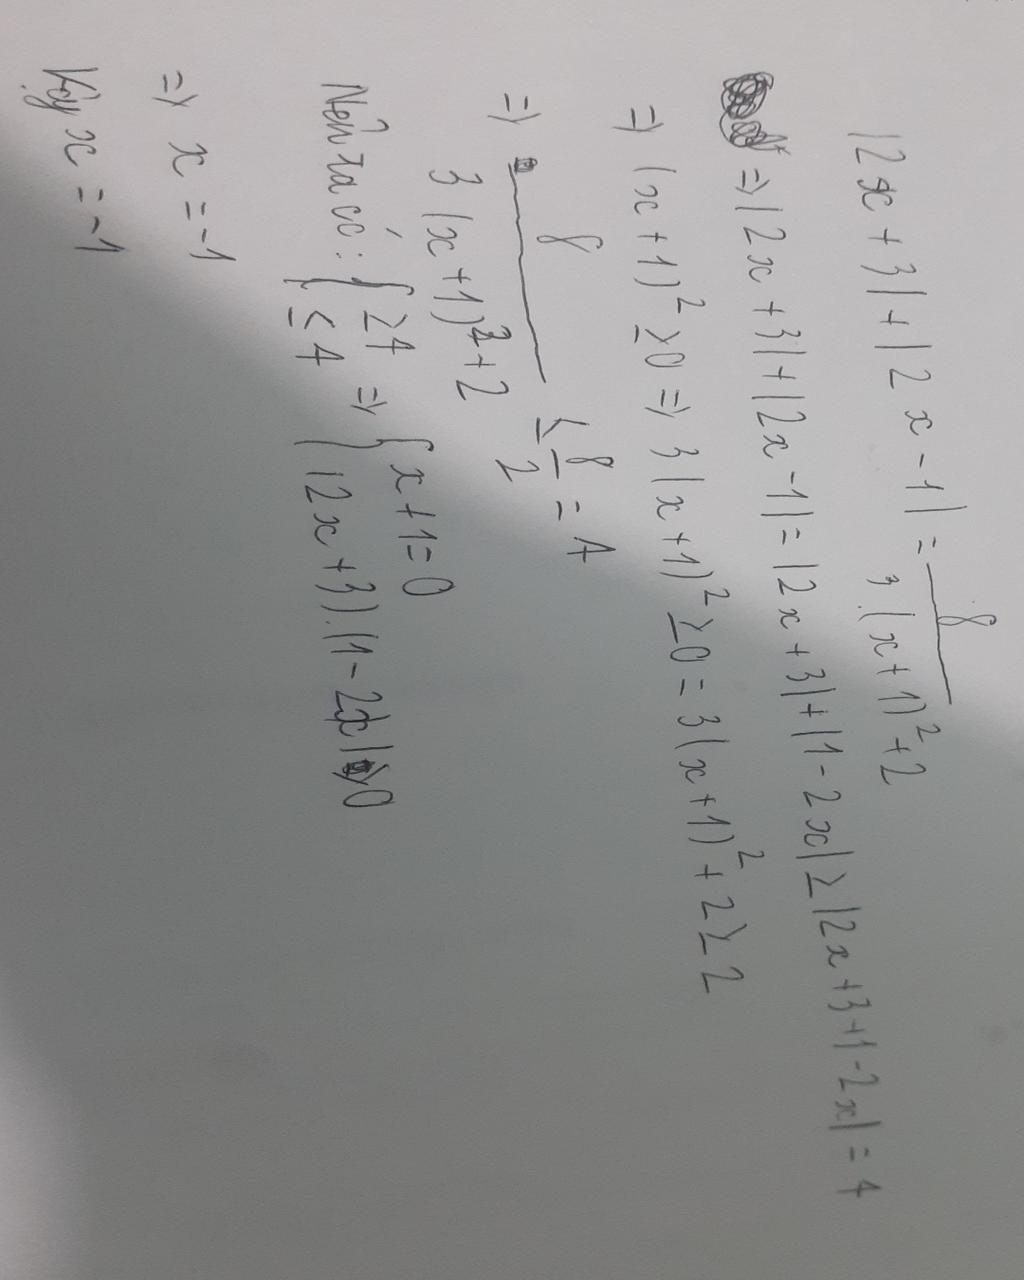 |2x + 3| + |2x - 1| = 8 / 3(x + 1)² + 2
=> |2x + 3| + |2x - 1| = |2x + 3| + |1 - 2x| ≥ |2x + 3 + 1 - 2x| = 4
=> (x + 1)² ≥ 0 => 3(x + 1)² ≥ 0 = 3(x + 1)² + 2 ≥ 2
=> 8 / 3(x + 1)² + 2 ≤ 8 / 2 = 4
Nên ta có: { ≥ 4 => { x + 1 = 0
{ ≤ 4 { (2x + 3).(1 - 2x) ≥ 0
=> x = -1
Vậy x = -1